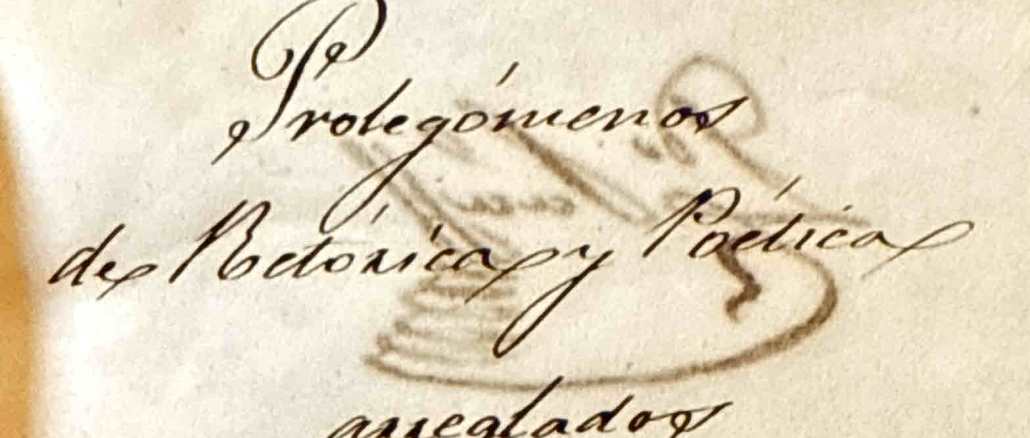 Prolegómenos
de Retórica y Poética
arreglados